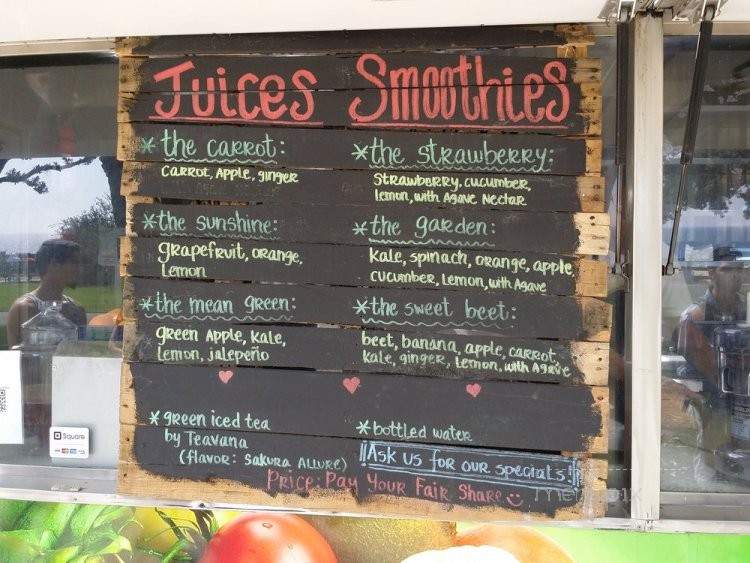 Juices
*the carrot:
carrot, Apple, ginger
*the sunshine:
grapefruit, orange,
Lemon
*the mean green:
green Apple, kale,
Lemon, jalepeño
Smoothies
*the strawberry:
Strawberry, cucumber,
lemon, with Agave Nectar
*the garden:
kale, spinach, orange, apple,
cucumber, lemon, with Agave
*the sweet beet:
beet, banana, apple, carrot,
kale, ginger, lemon, with Agave
*green iced tea
by Teavana
(flavor: Sakura Allure)
*bottled water
Ask us for our specials!
Price: Pay Your Fair Share
Square